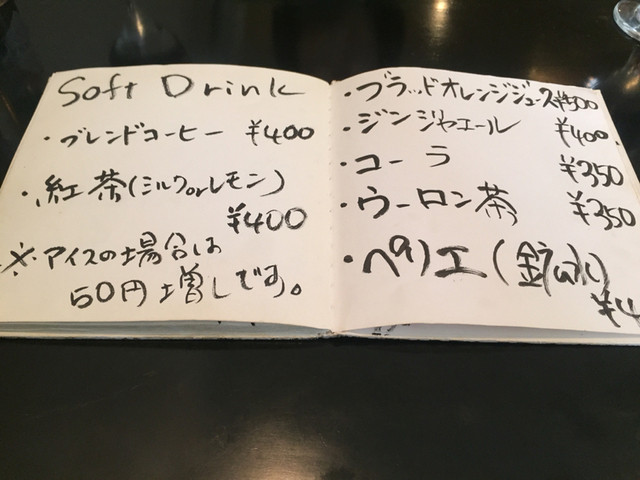 Soft Drink
・ブレンドコーヒー ¥400
・紅茶(ミルクorレモン)
¥400
※・アイスの場合は
50円増しです。
・ブラッドオレンジジュース¥500
・ジンジャエール ¥400
・コーラ ¥350
・ウーロン茶 ¥350
・ペリエ(鉱水)
¥4